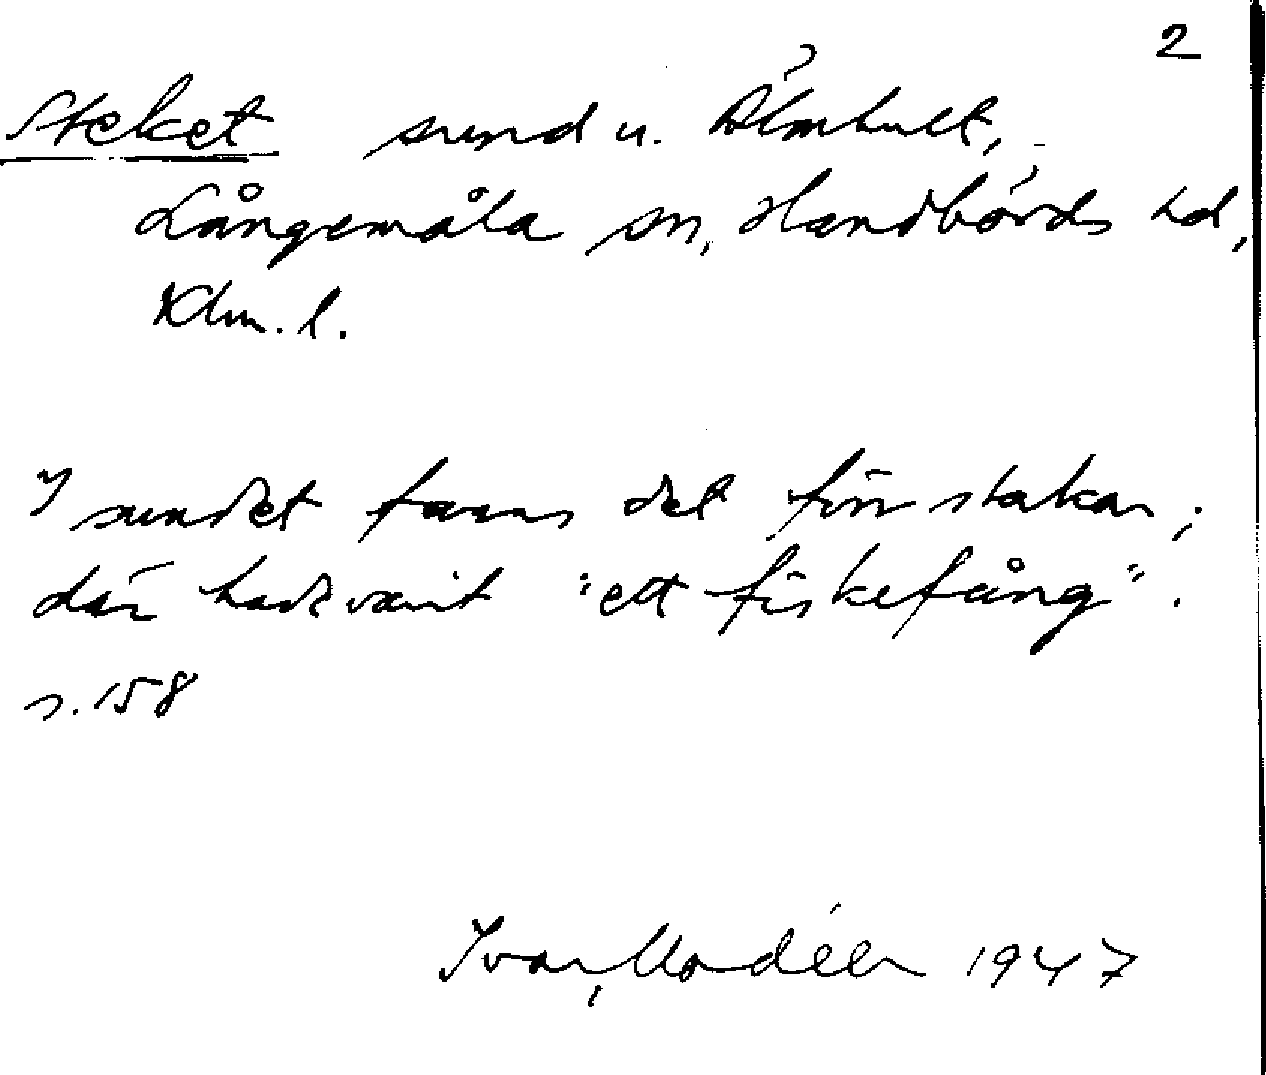 2
Steket sund u. Älmhult,
Långemåla sn, Handbörds hd,
Klm. l.
I sundet fanns det förr stakar;
där hade varit "ett fiskefång".
s. 158
Ivar Modéer 1947